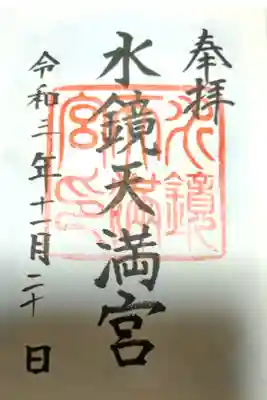 奉拝
水鏡天満宮
令和三年十一月二十日
水鏡天満宮印